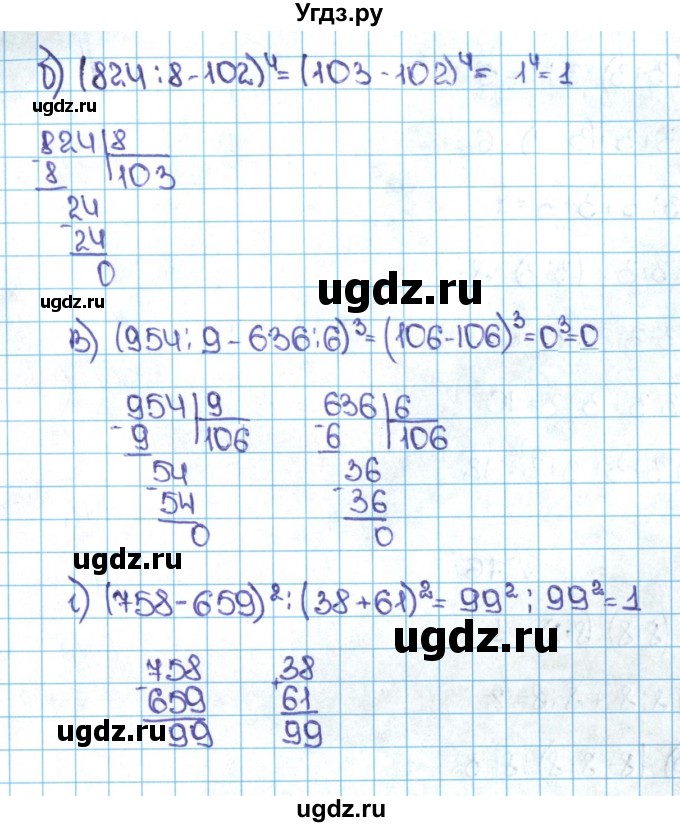 Угдз.ру
б) (824 : 8 - 102)⁴ = (103 - 102)⁴ = 1⁴ = 1
ugdz.ru
824 | 8
- 8 | 103
24
- 24
0
ugdz.ru
ugdz.ru
в) (954 : 9 - 636 : 6)³ = (106 - 106)³ = 0³ = 0
954 | 9 636 | 6
- 9 | 106 - 6 | 106
54 36
- 54 - 36
0 0
ugdz.ru
г) (758 - 659)² : (38 + 61)² = 99² : 99² = 1
ugdz.ru
758 38
- 659 + 61
99 99
ugdz.ru
ugdz.ru